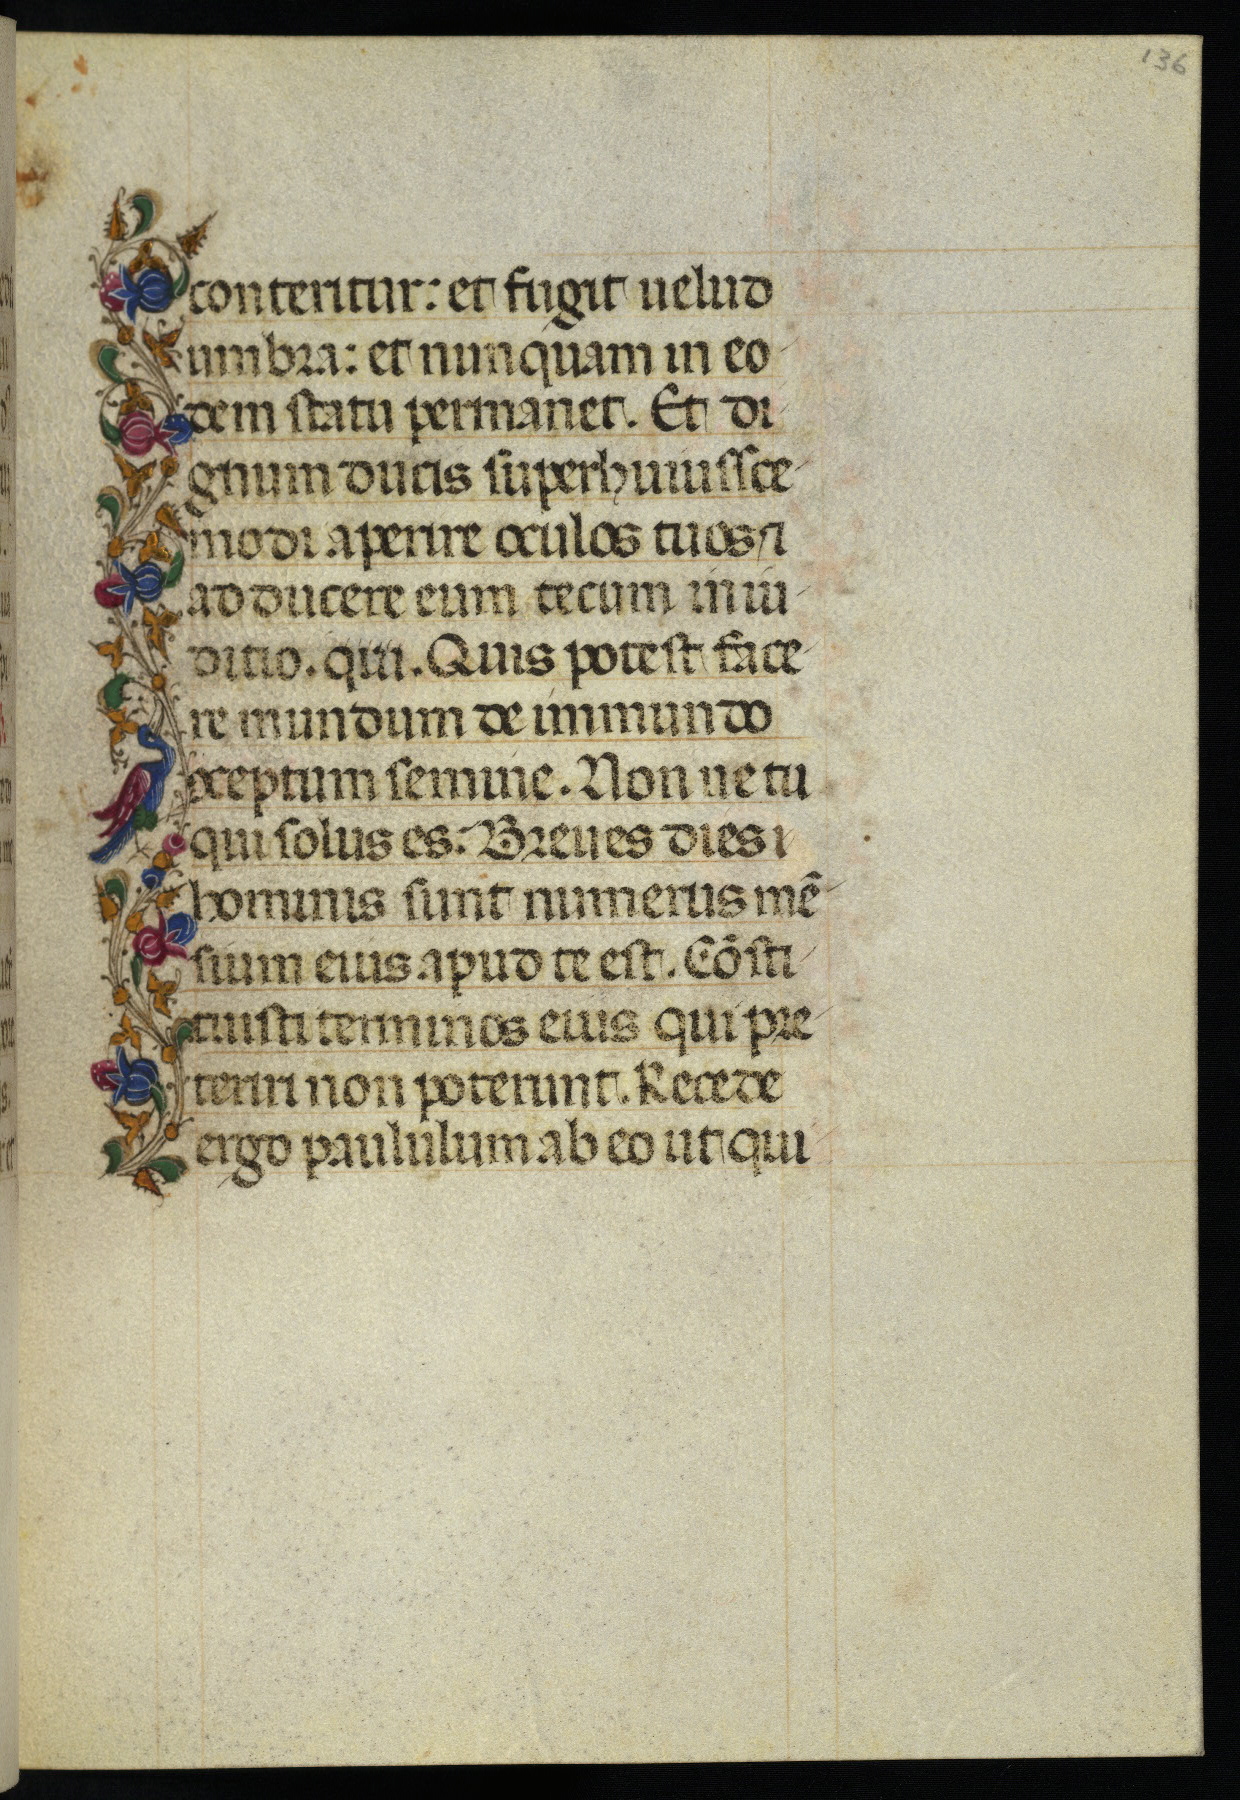 136
conteritur: et fugit uelud
umbra: et nunquam in eo
dem statu permanet. Et di
gnum ducis super huiussce
modi aperire oculos tuos ⁊
adducere eum tecum in iu
ditio. qui. Quis potest face
re mundum de immundo
cceptum semine. Non ne tu
qui solus es: Breues dies
hominis sunt numerus mē
sium eius apud te est. Cōsti
tuisti terminos eius qui pre
teriri non poterunt. Recede
ergo paululum ab eo ut qui